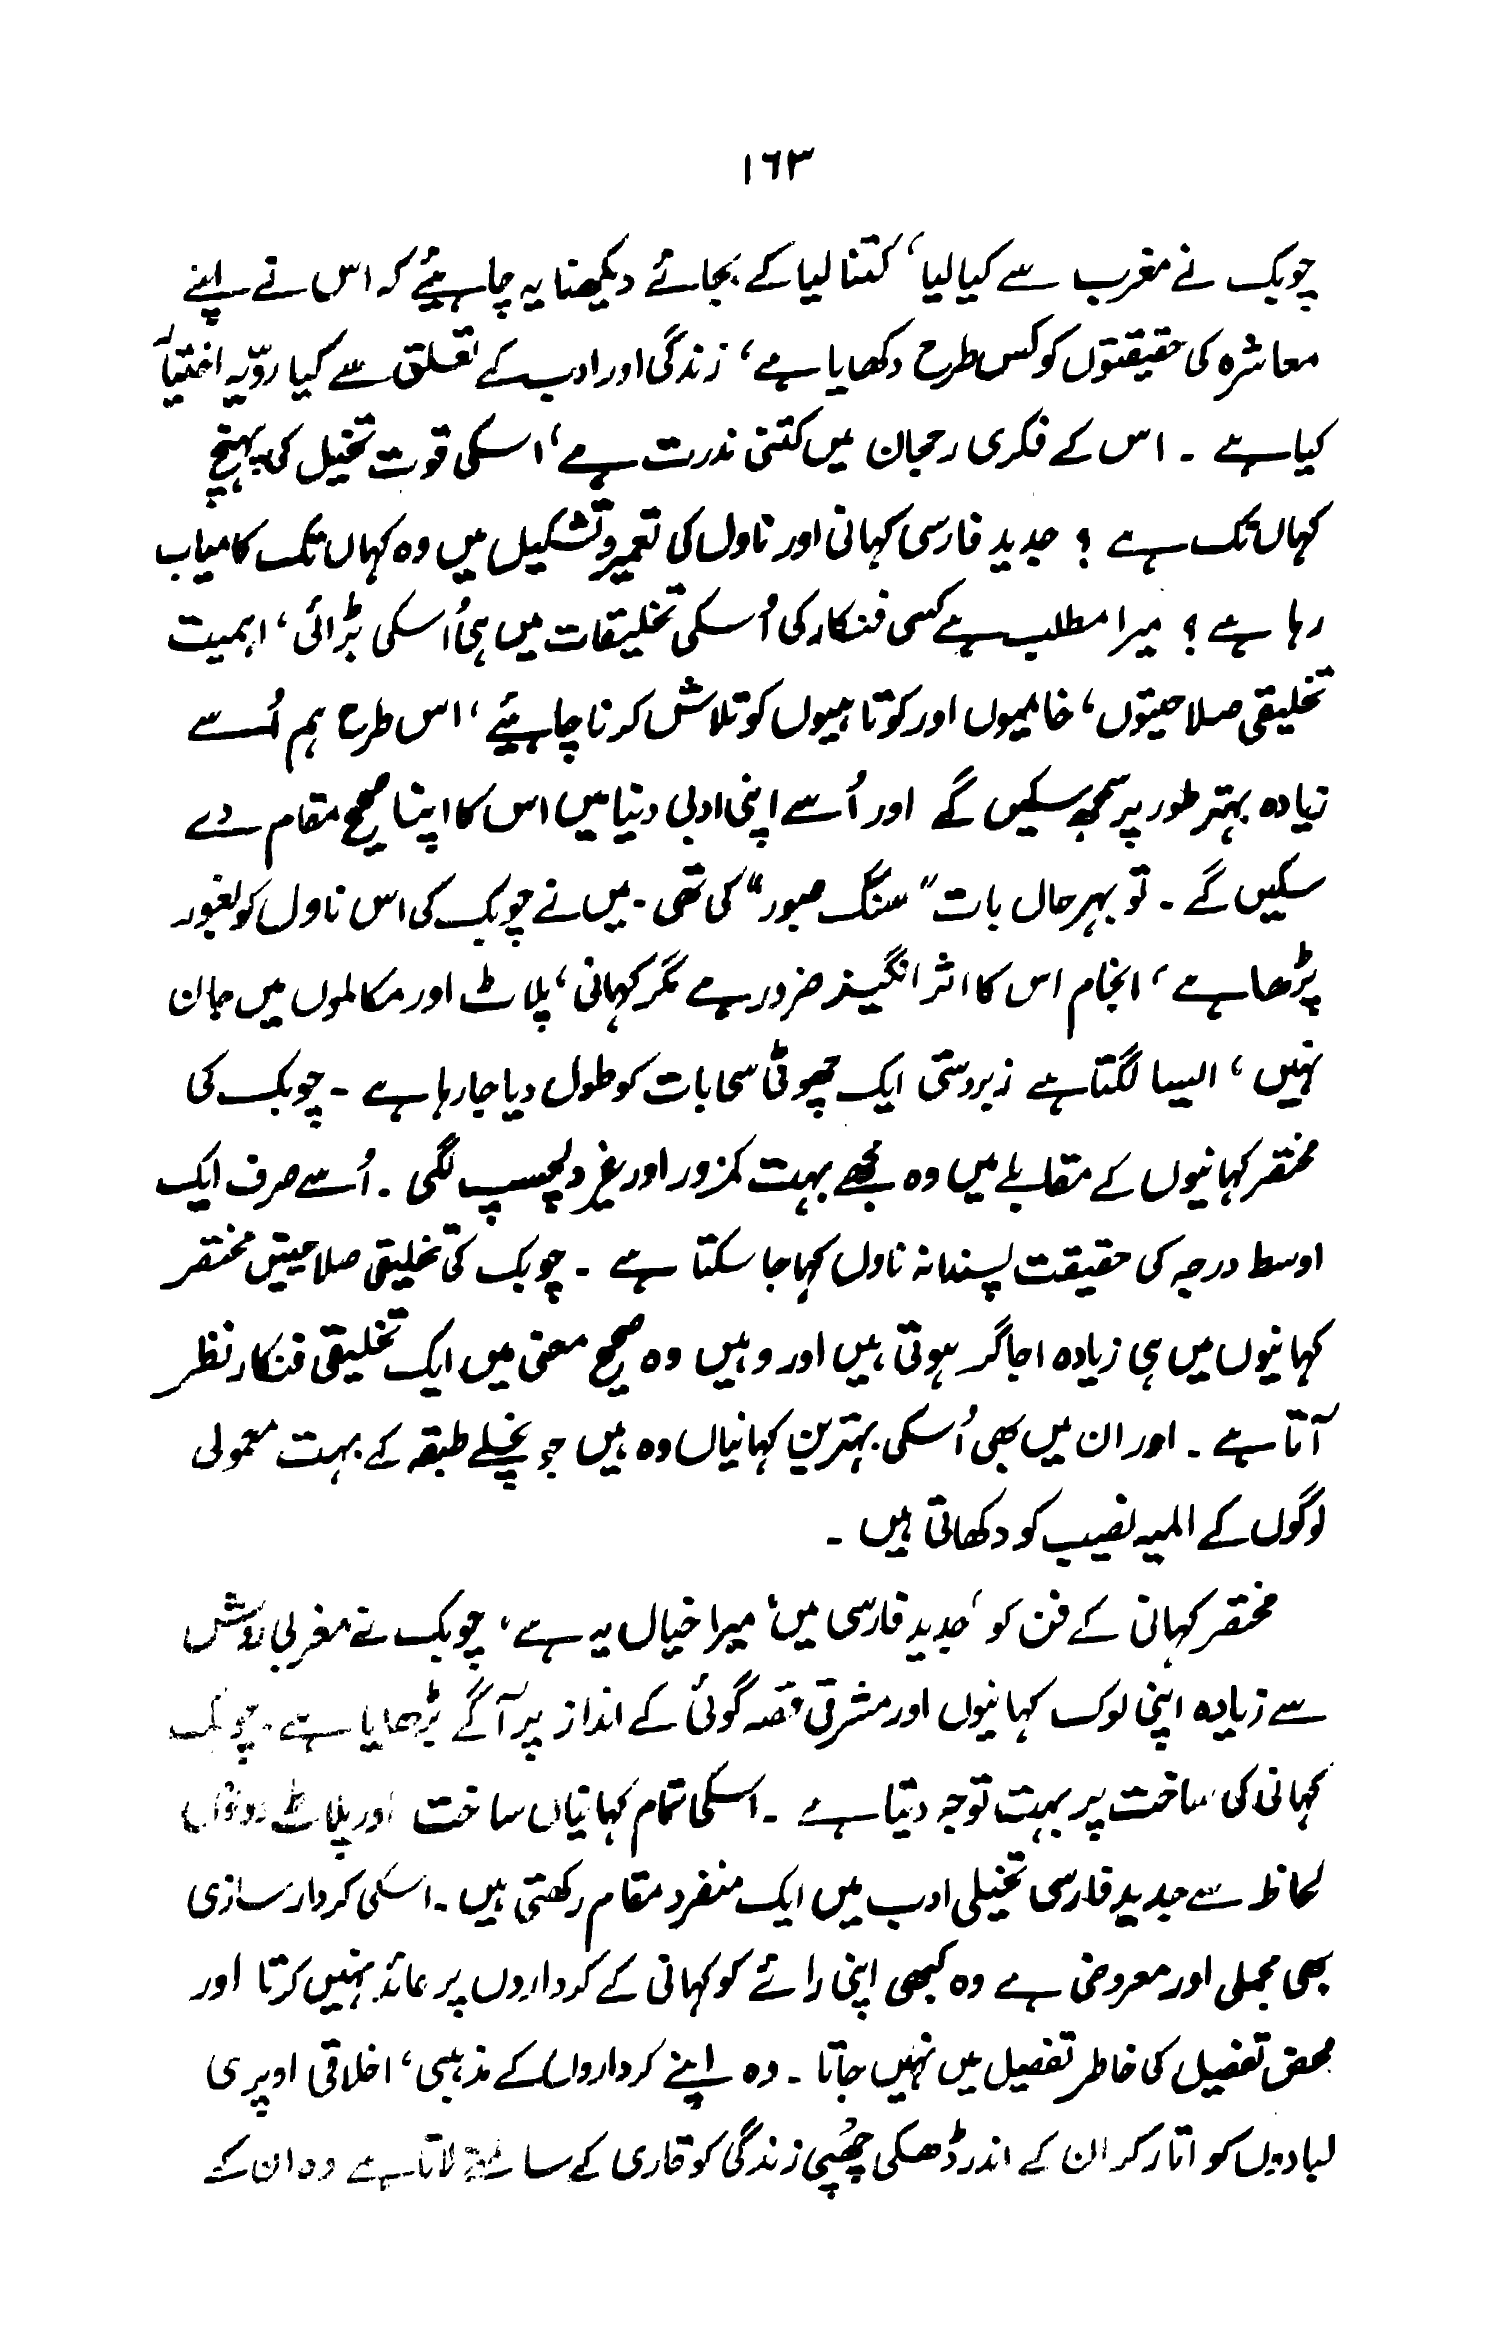 ۱۶۳
چوبک نے مغرب سے کیا لیا، کتنا لیا کے بجائے دیکھنا یہ چاہیئے کہ اس نے اپنے
معاشرہ کی حقیقتوں کو کس طرح دکھایا ہے، زندگی اور ادب کے تعلق سے کیا رویّہ اختیار
کیا ہے ۔ اس کے فکری رحجان میں کتنی ندرت ہے، اسکی قوت تخیل کی پہنچ
کہاں تک ہے ؟ جدید فارسی کہانی اور ناول کی تعمیر و تشکیل میں وہ کہاں تک کامیاب
رہا ہے ؟ میرا مطلب ہے کسی فنکار کی اُسکی تخلیقات میں ہی اُسکی بڑائی، اہمیت
تخلیقی صلاحیتوں، خامیوں اور کوتاہیوں کو تلاش کرنا چاہیئے، اس طرح ہم اُسے
زیادہ بہتر طور پر سمجھ سکیں گے اور اُسے اپنی ادبی دنیا میں اس کا اپنا صحیح مقام دے
سکیں گے ۔ تو بہرحال بات "سنگ صبور" کی تھی ۔ میں نے چوبک کی اس ناول کو بغور
پڑھا ہے، انجام اس کا اثر انگیز ضرور ہے مگر کہانی، پلاٹ اور مکالموں میں جان
نہیں، ایسا لگتا ہے زبردستی ایک چھوٹی سی بات کو طول دیا جا رہا ہے ۔ چوبک کی
مختصر کہانیوں کے مقابلے میں وہ مجھے بہت کمزور اور غیر دلچسپ لگی ۔ اُسے صرف ایک
اوسط درجہ کی حقیقت پسندانہ ناول کہا جا سکتا ہے ۔ چوبک کی تخلیقی صلاحیتیں مختصر
کہانیوں میں ہی زیادہ اجاگر ہوتی ہیں اور وہیں وہ صحیح معنی میں ایک تخلیقی فنکار نظر
آتا ہے ۔ اور ان میں بھی اُسکی بہترین کہانیاں وہ ہیں جو نچلے طبقہ کے بہت معمولی
لوگوں کے المیہ نصیب کو دکھاتی ہیں ۔
مختصر کہانی کے فن کو، جدید فارسی میں، میرا خیال یہ ہے، چوبک نے مغربی روش
سے زیادہ اپنی لوک کہانیوں اور مشرقی قصہ گوئی کے انداز پر آگے بڑھایا ہے ۔ چوبک
کہانی کی ساخت پر بہت توجہ دیتا ہے ۔ اسکی تمام کہانیاں ساخت اور پلاٹ دونوں
لحاظ سے جدید فارسی تخیلی ادب میں ایک منفرد مقام رکھتی ہیں ۔ اسکی کردار سازی
بھی مجملی اور معروضی ہے وہ کبھی اپنی رائے کو کہانی کے کرداروں پر عائد نہیں کرتا اور
محض تفصیل کی خاطر تفصیل میں نہیں جاتا ۔ وہ اپنے کرداروں کے مذہبی، اخلاقی اوپری
لبادوں کو اتار کر ان کے اندر ڈھکی چھُپی زندگی کو قاری کے سامنے لاتا ہے وہ ان کے